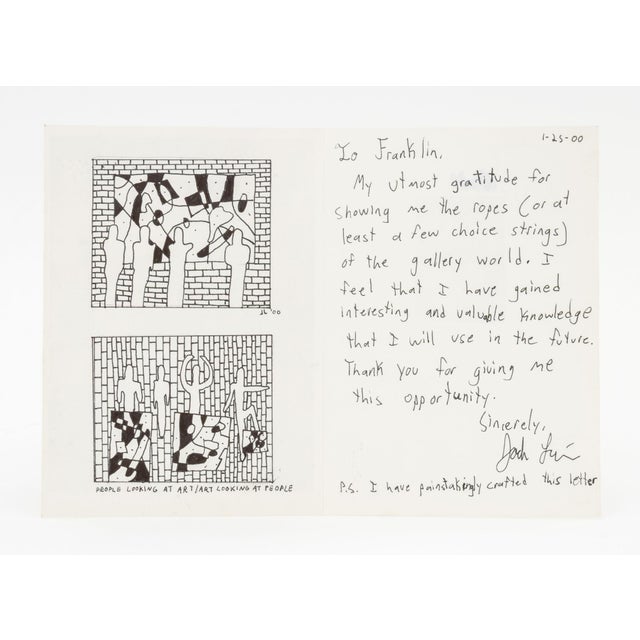 JL '00
PEOPLE LOOKING AT ART/ART LOOKING AT PEOPLE
1-25-00
Yo Franklin,
My utmost gratitude for
showing me the ropes (or at
least a few choice strings)
of the gallery world. I
feel that I have gained
interesting and valuable knowledge
that I will use in the future.
Thank you for giving me
this opportunity.
Sincerely,
Josh
P.S. I have painstakingly crafted this letter